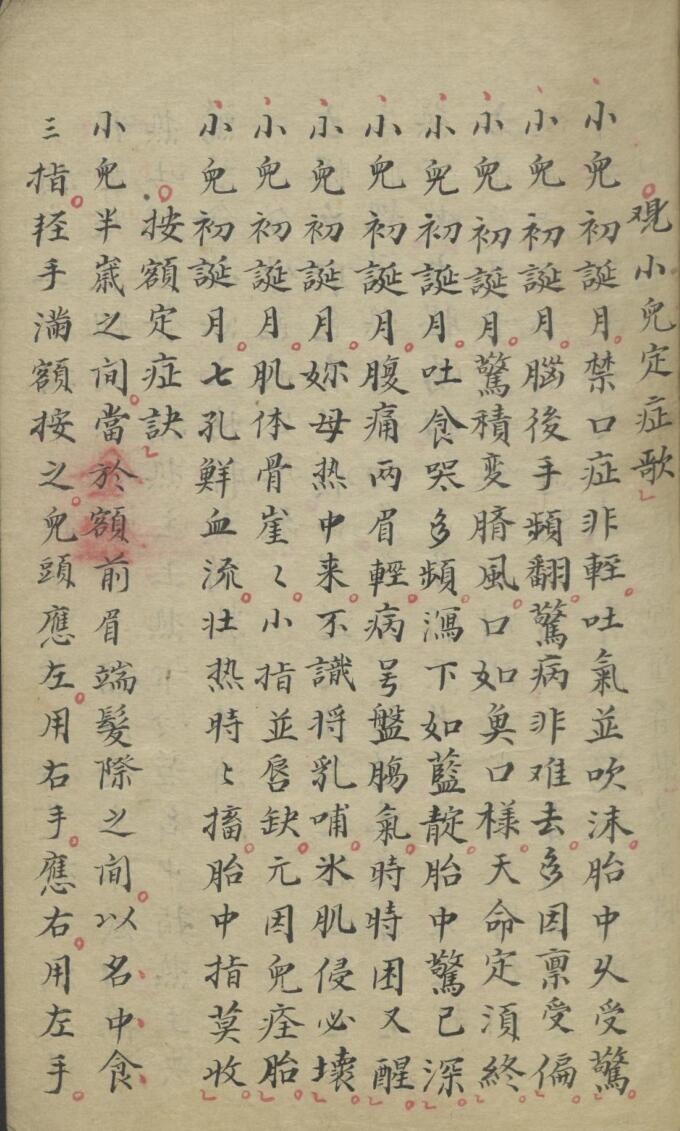 观小兒定症歌
小兒初誕月禁口症非輕吐氣並吹沫胎中久受驚
小兒初誕月腦後手頻翻驚病非难去多因禀受偏
小兒初誕月驚積变臍風口如魚口樣天命定須終
小兒初誕月吐食哭多頻瀉下如藍靛胎中驚已深
小兒初誕月腹痛两眉輕病号盤腸氣時時困又醒
小兒初誕月妳母热中来不識将乳哺氷肌侵必壞
小兒初誕月肌体骨崖〻小指並唇缺元因兒痊胎
小兒初誕月七孔鮮血流壮热時〻搐胎中指莫收
按額定症訣
小兒半歳之间當於額前眉端髮際之间以名中食
三指軽手满額按之兒頭應左用右手應右用左手